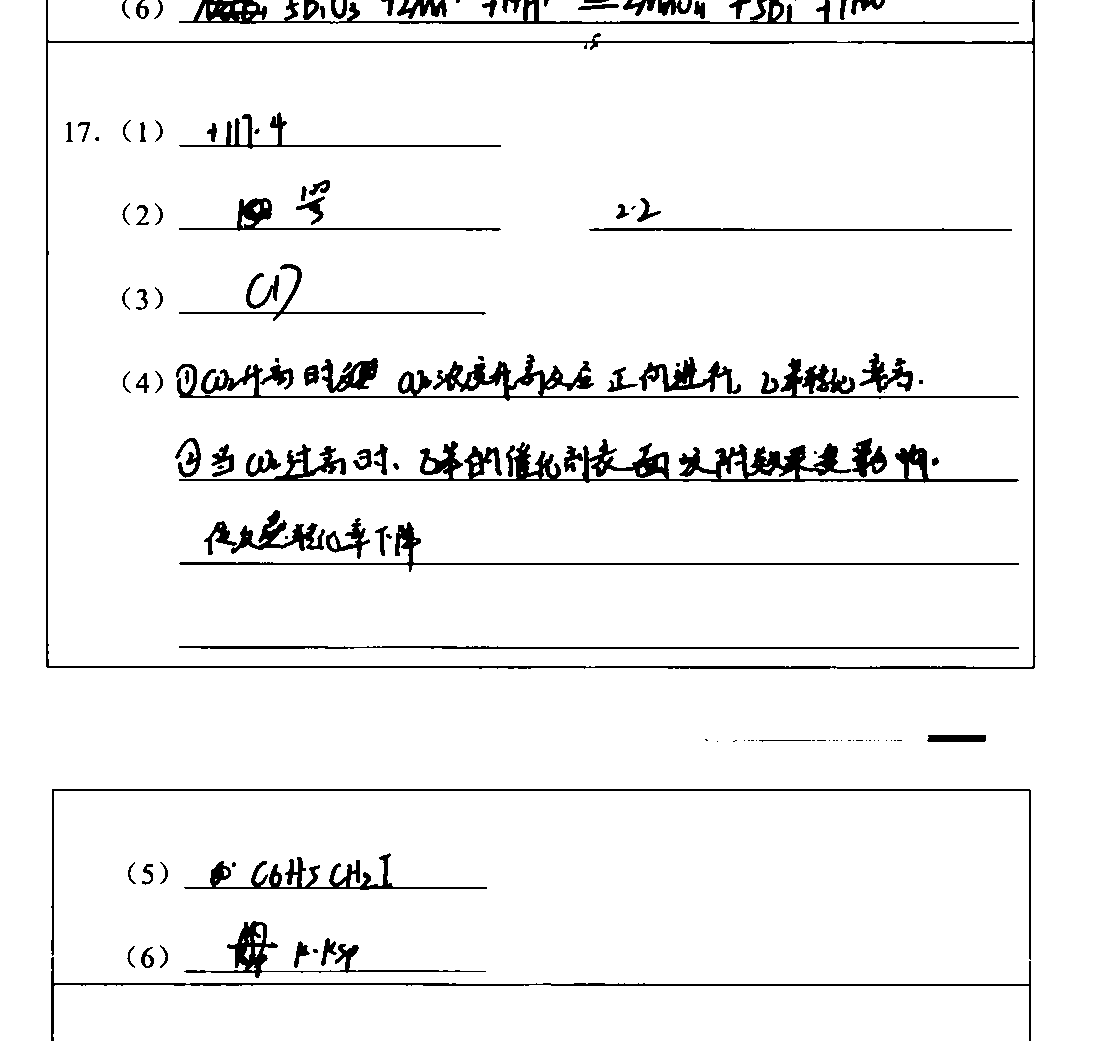 (6) 5BiO₃⁻ +2Mn²⁺ +14H⁺ = 2MnO₄⁻ +5Bi +7H₂O
17.(1) +117.4
(2) 100/5 2.2
(3) (1)
(4) ①CO₂升高时 CO₂浓度升高反应正向进行, 乙苯转化率高.
②当CO₂过高时、乙苯的催化剂表面吸附效果受影响.
使 转化率下降
(5) C6H5CH2I
(6) K·Ksp